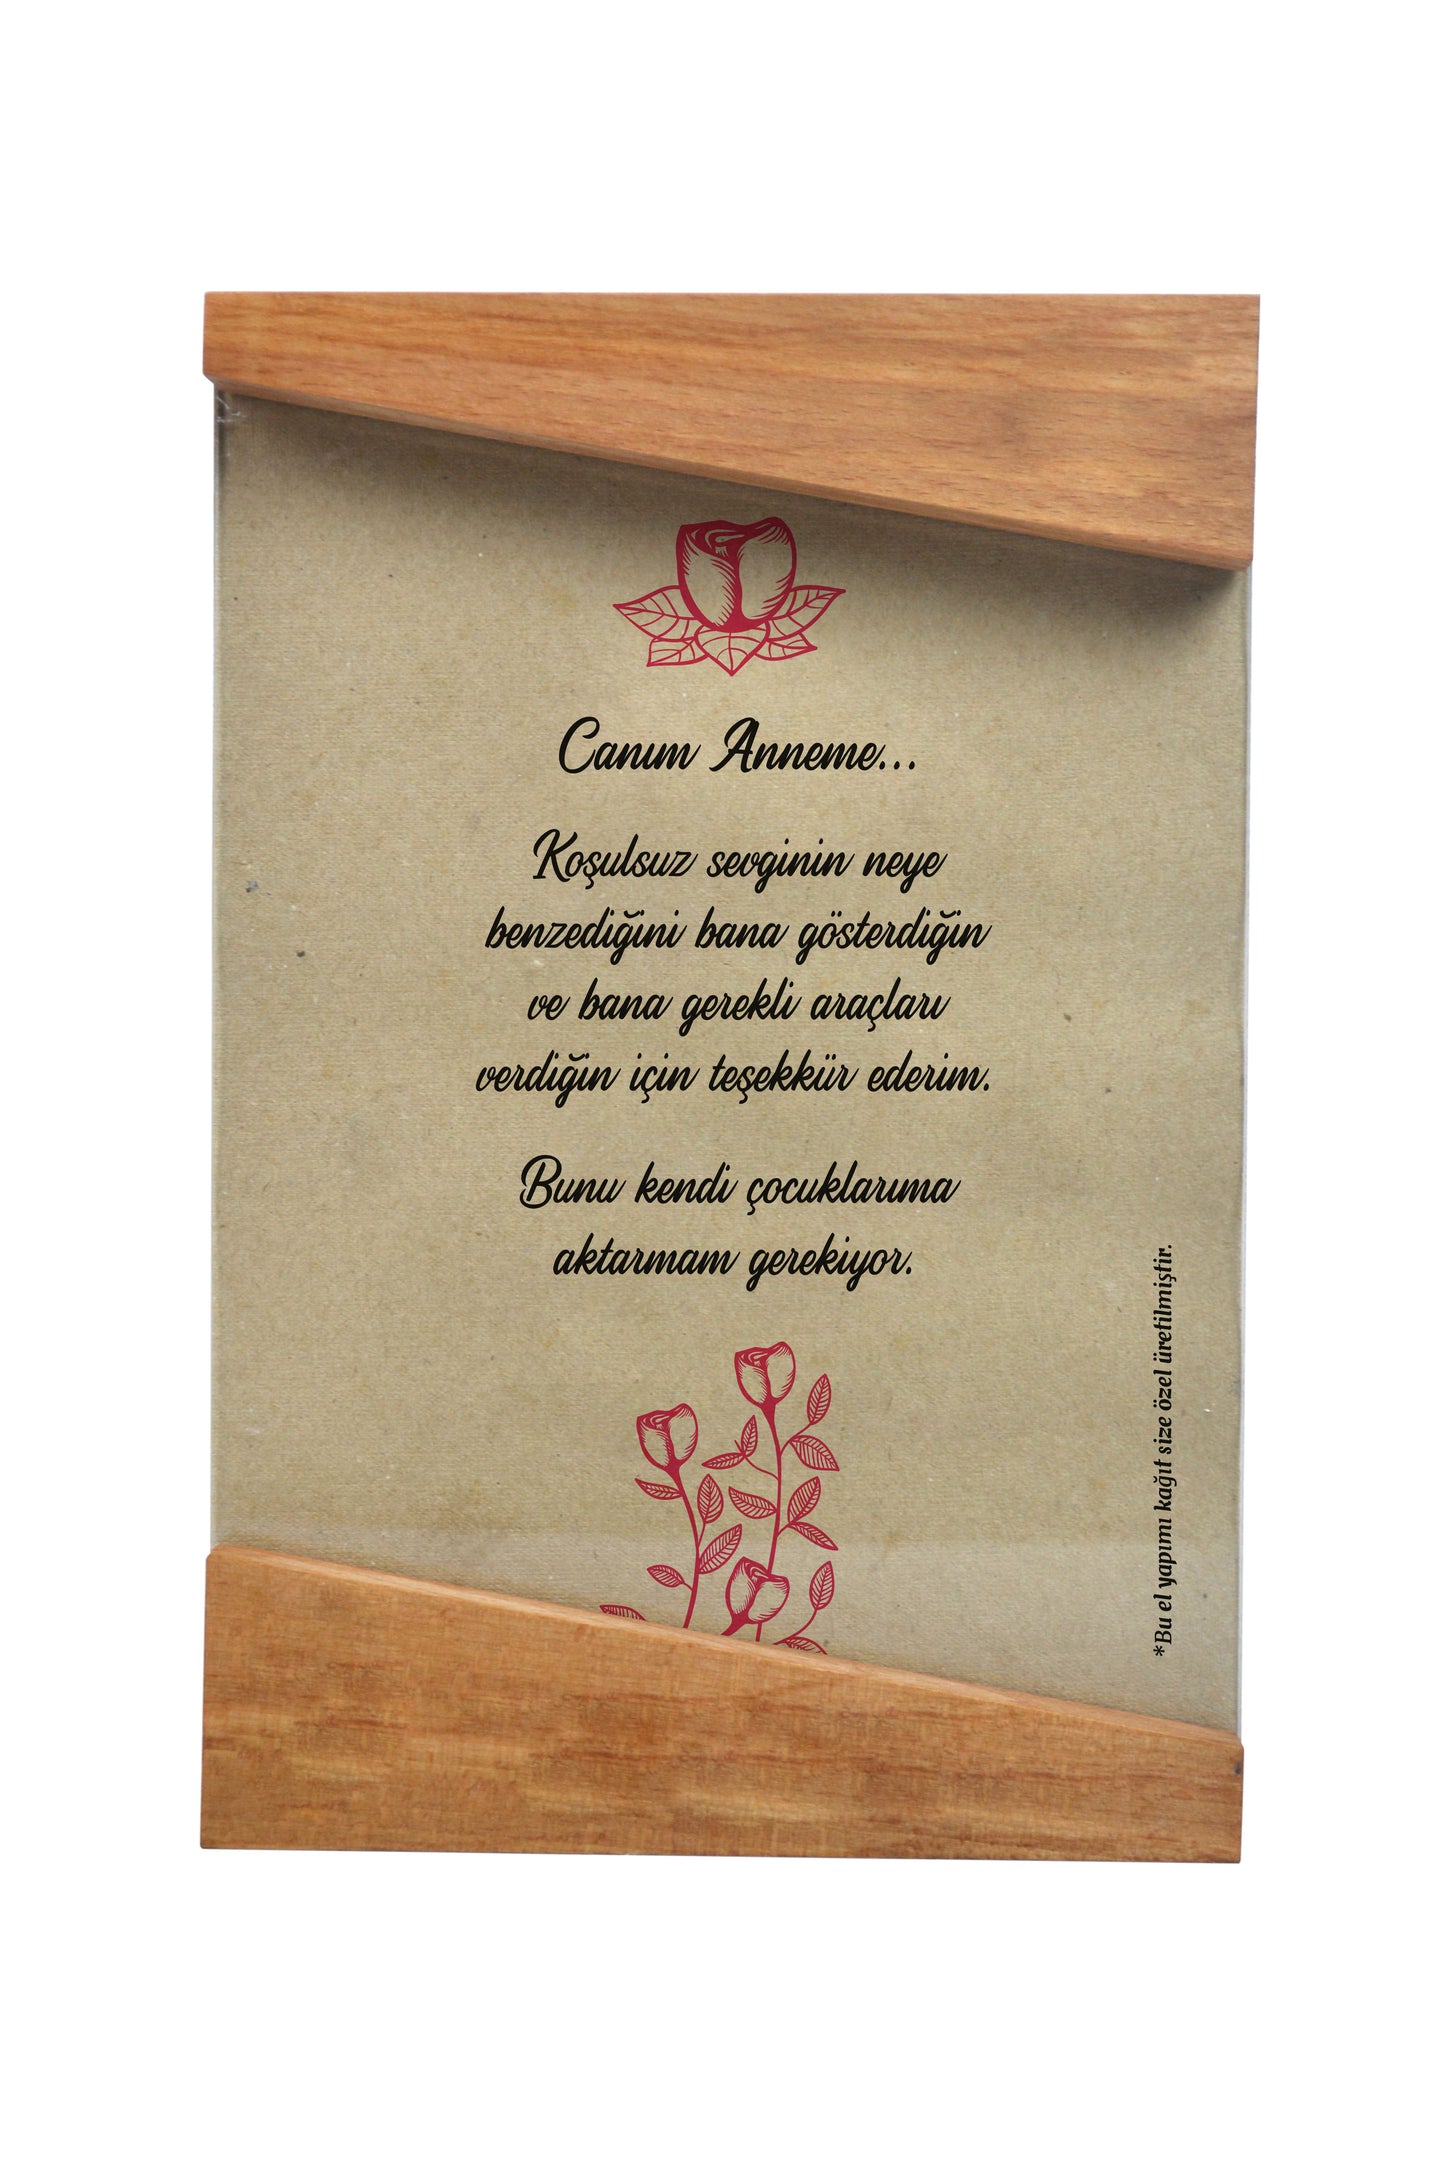 Canım Anneme...
Koşulsuz sevginin neye
benzediğini bana gösterdiğin
ve bana gerekli araçları
verdiğin için teşekkür ederim.
Bunu kendi çocuklarıma
aktarmam gerekiyor.
*Bu el yapımı kağıt size özel üretilmiştir.